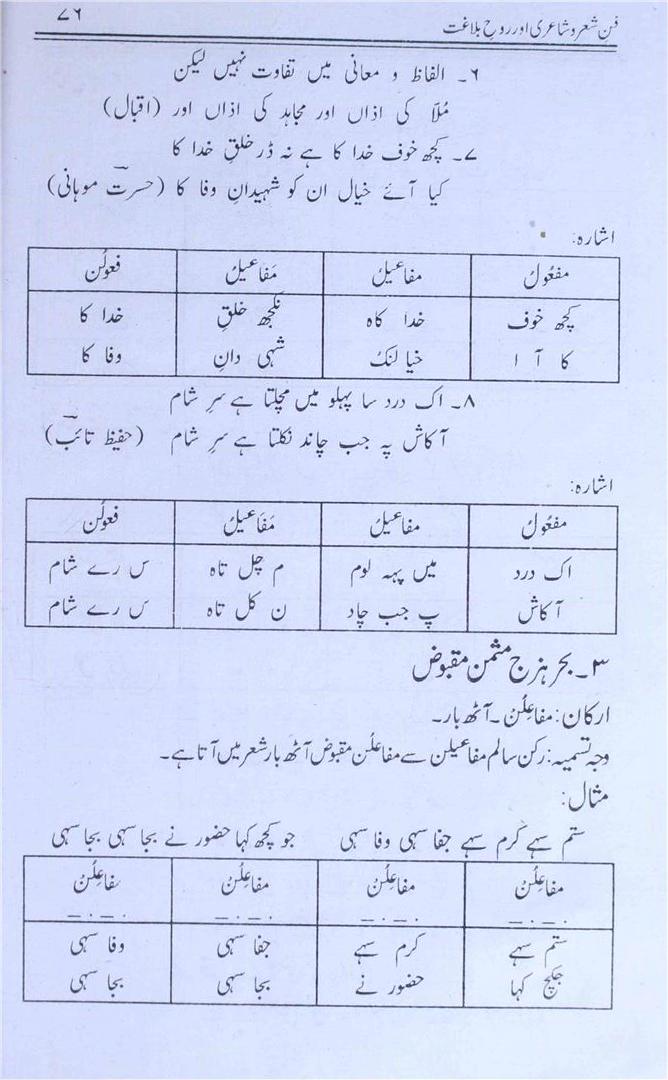 فن شعر و شاعری اور روحِ بلاغت ۷۶
۶۔ الفاظ و معانی میں تفاوت نہیں لیکن
مُلّا کی اذاں اور مجاہد کی اذاں اور (اقبال)
۷۔ کچھ خوف خدا کا ہے نہ ڈر خلقِ خدا کا
کیا آئے خیال ان کو شہیدانِ وفا کا (حسرت موہانی)
اشارہ:
مفعُولُ مفاعیلُ مَفاعیلُ فعولُن
کچھ خوف خدا کاہ نکچھ خلقِ خدا کا
کا آ ا خیا لنکُ شہی دانِ وفا کا
۸۔ اک درد سا پہلو میں مچلتا ہے سرِ شام
آکاش پہ جب چاند نکلتا ہے سرِ شام (حفیظ تائب)
اشارہ:
مفعُولُ مفاعیلُ مَفَاعیلُ فعولُن
اک درد میں پہہ لوم م چل تاہ س رے شام
آکاش پ جب چاد ن کل تاہ س رے شام
۳۔ بحر ہزج مثمن مقبوض
ارکان: مفاعِلُن۔ آٹھ بار۔
وجہ تسمیہ: رکن سالم مفاعیلن سے مفاعلُن مقبوض آٹھ بار شعر میں آتا ہے۔
مثال:
ستم سہے کرم سہے جفا سہی وفا سہی جو کچھ کہا حضور نے بجا سہی بجا سہی
مفاعِلُنْ مفاعِلُنْ مفاعِلُنْ مفاعِلُنْ
۔ _ ۔ _ ۔ _ ۔ _ ۔ _ ۔ _ ۔ _ ۔ _
ستم سہے کرم سہے جفا سہی وفا سہی
جکچ کہا حضور نے بجا سہی بجا سہی